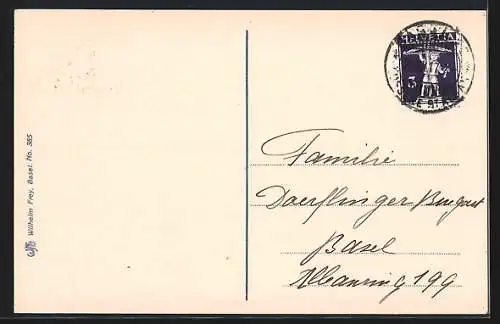 Wilhelm Frey, Basel. No. 385
HELVETIA
3
Familie
Daerflinger
Basel
Albanring 199